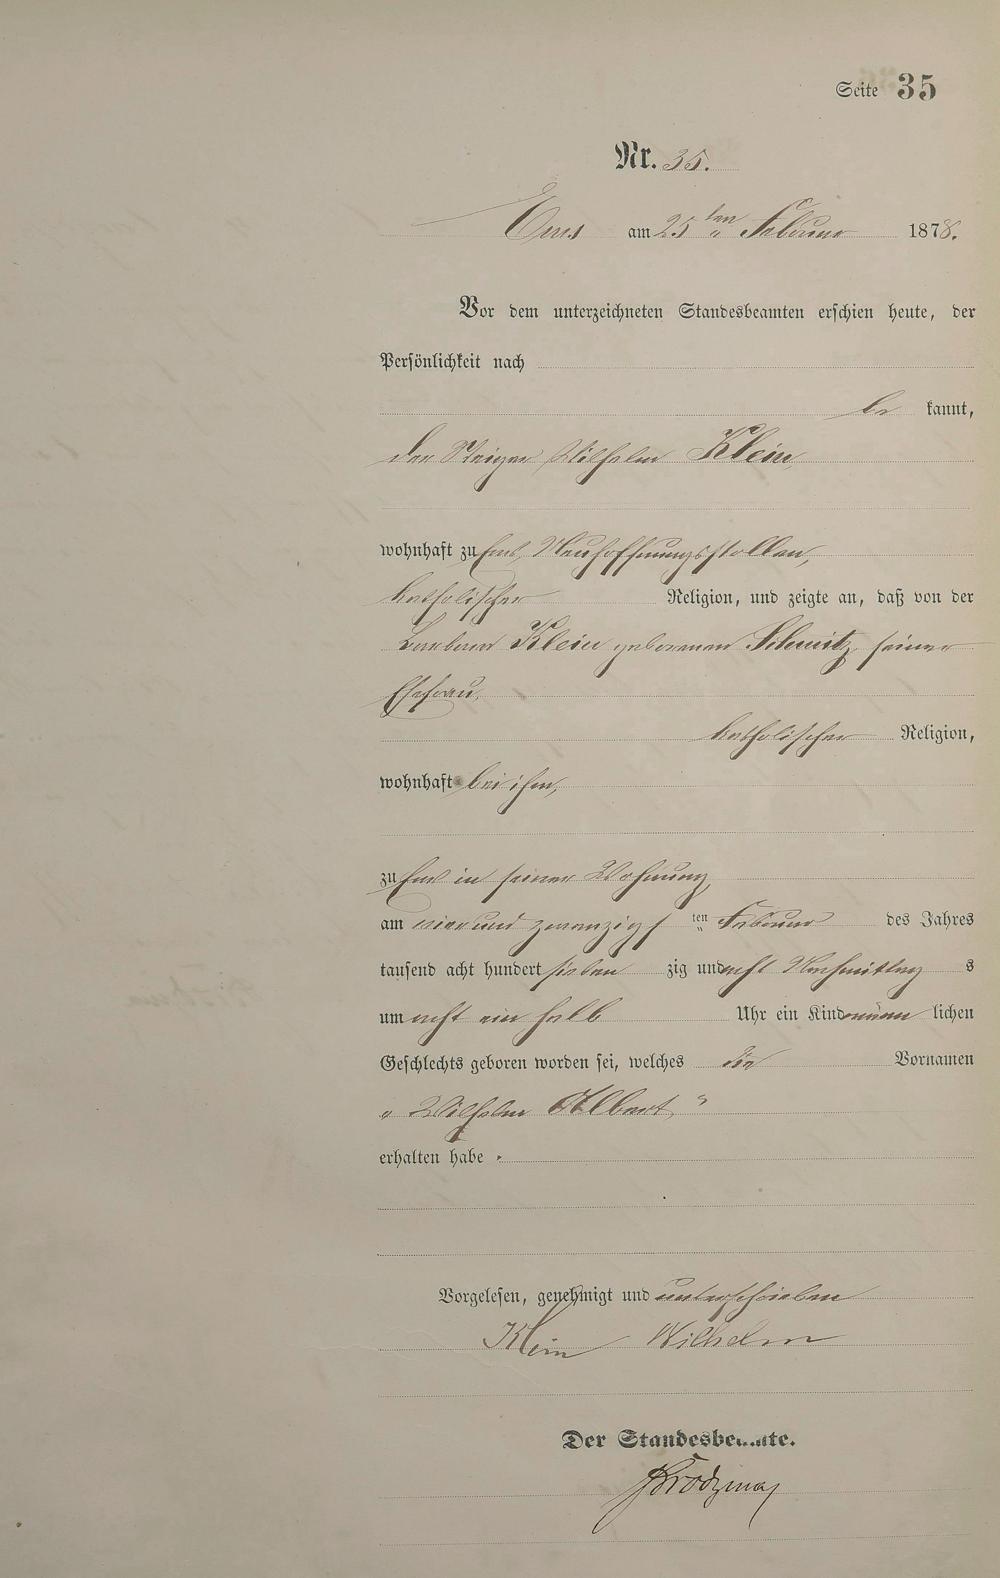 Seite 35
Nr. 35.
Ems am 25 ten Februar 1878.
Vor dem unterzeichneten Standesbeamten erschien heute, der
Persönlichkeit nach
be kannt,
der Steiger Wilhelm Klein,
wohnhaft zu Ems, Neuhoffnungsstollen,
katholischer Religion, und zeigte an, daß von der
Barbara Klein geborenen Schmitz, seiner
Ehefrau,
katholischer Religion,
wohnhaft bei ihm,
zu Ems in seiner Wohnung,
am vierundzwanzigs ten Februar des Jahres
tausend acht hundert sieben zig und acht Nachmittag s
um acht ein halb Uhr ein Kind männ lichen
Geschlechts geboren worden sei, welches die Vornamen
„ Wilhelm Albert “
erhalten habe.
Vorgelesen, genehmigt und unterschrieben
Klein Wilhelm
Der Standesbeamte.